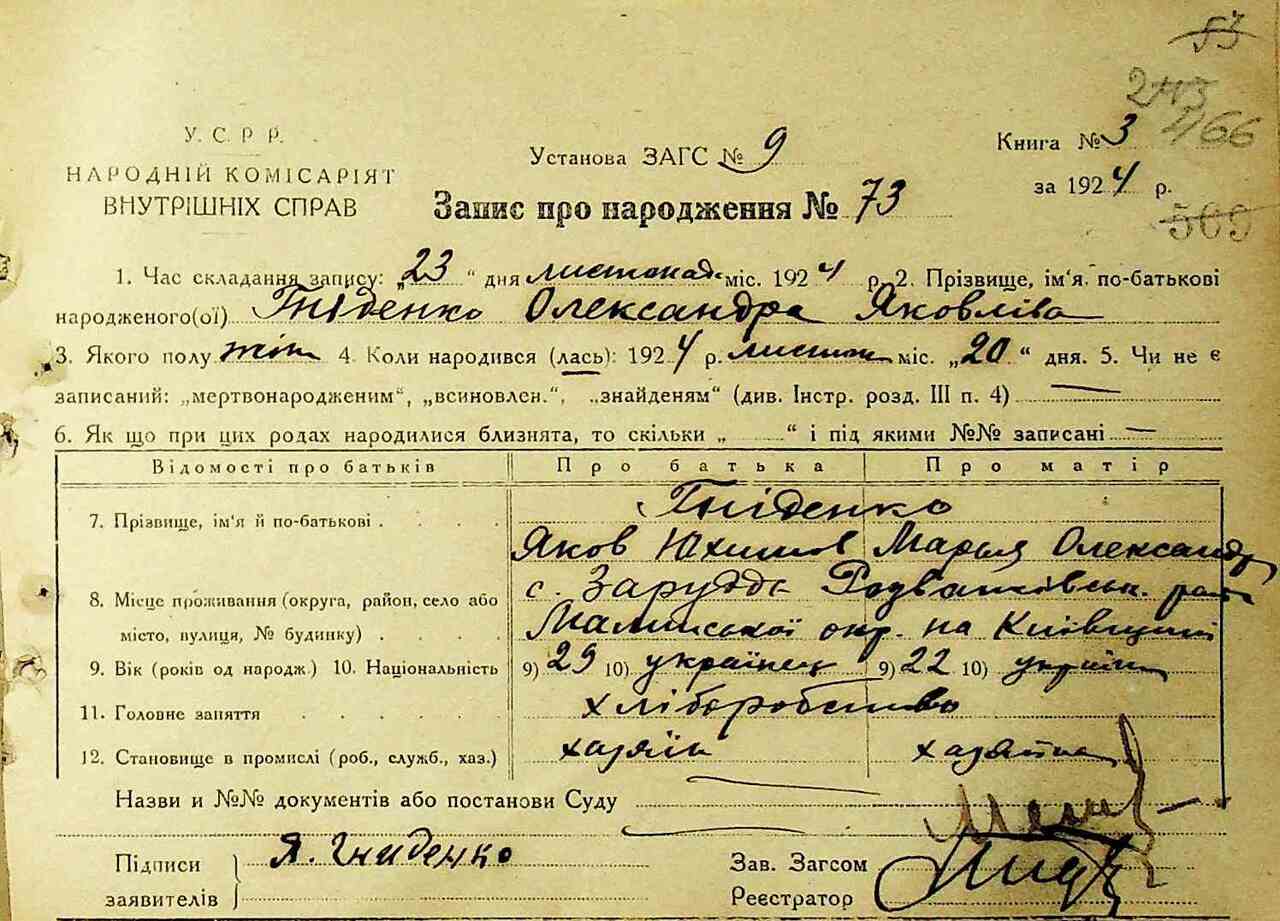 53
243
1/66
У. С. Р Р.
НАРОДНІЙ КОМІСАРІЯТ
ВНУТРІШНІХ СПРАВ
Установа ЗАГС № 9
Книга № 3
за 1924 р.
Запис про народження № 73
509
1. Час складання запису: „23“ дня листопад міс. 1924 р. 2. Прізвище, ім'я по-батькові
народженого(ої) Гніденко Олександра Яковліва
3. Якого полу жін 4. Коли народився (лась): 1924 р. листоп міс. „20“ дня. 5. Чи не є
записаний: „мертвонародженим“, „всиновлен.“, „знайденям“ (див. Інстр. розд. III п. 4)
6. Як що при цих родах народилися близнята, то скільки „ “ і під якими №№ записані —
Відомості про батьків Про батька Про матір
7. Прізвище, ім'я й по-батькові Гніденко
Яков Юхимов Марья Олександр
8. Місце проживання (округа, район, село або с. Заруддє Розважівськ. рай
місто, вулиця, № будинку) Малинської окр. на Київщині
9. Вік (років од народж.) 10. Національність 9) 29 10) українец 9) 22 10) україн
11. Головне заняття хліборобство
12. Становище в промислі (роб., служб., хаз.) хазяїн хазяйка
Назви и №№ документів або постанови Суду
Підписи
заявителів
Я. Гниденко
Зав. Загсом
Реєстратор